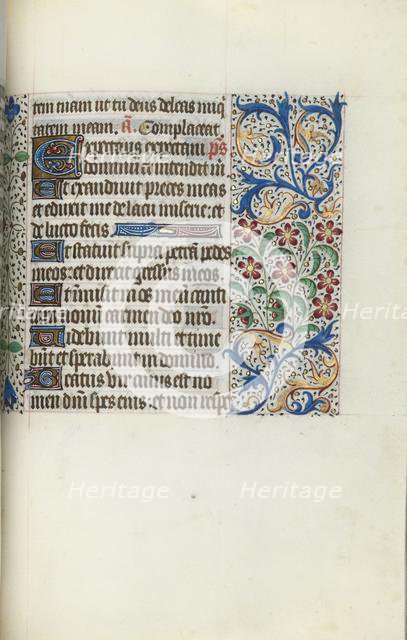 tem tuam ut tu deus deleas iniq
tatem meam. A. Complaceat ps
Expectans expectaui
dominum et intendit m
Et exaudiuit preces meas
et eduxit me de lacu miserie et
de luto fecis
Et statuit supra petrā pedes
meos et direxit gressus meos.
Et inmisit in os meū canti
nouū carmen deo nr̄o.
Uidebunt multi et time
būt et sperabunt in domino.
Beatus uir cuius est no
men dn̄i spes eius et non resp
Heritage Heritage
Heritage Heritage